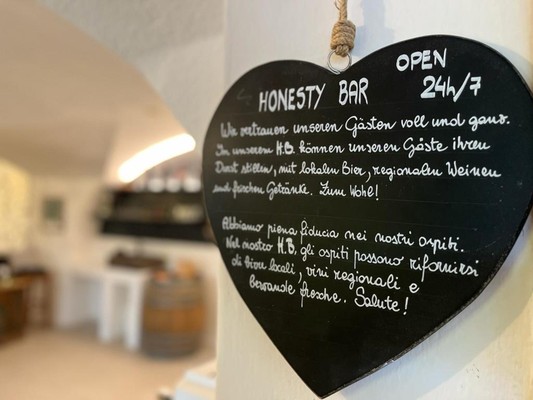 OPEN
HONESTY BAR 24h/7
Wir vertrauen unseren Gästen voll und ganz.
In unserem H.B. können unseren Gäste ihren
Durst stillen, mit lokalen Bier, regionalen Weinen
und frischen Getränke. Zum Wohl!
Abbiamo piena fiducia nei nostri ospiti.
Nel nostro H.B. gli ospiti possono rifornirsi
di birre locali, vini regionali e
bevande fresche. Salute!